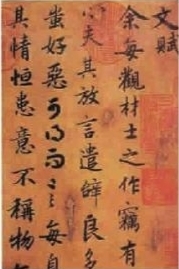 文賦
余每觀材士之作竊有
心夫其放言遣辭良多
蚩好惡可得而言每自
其情恒患意不稱物